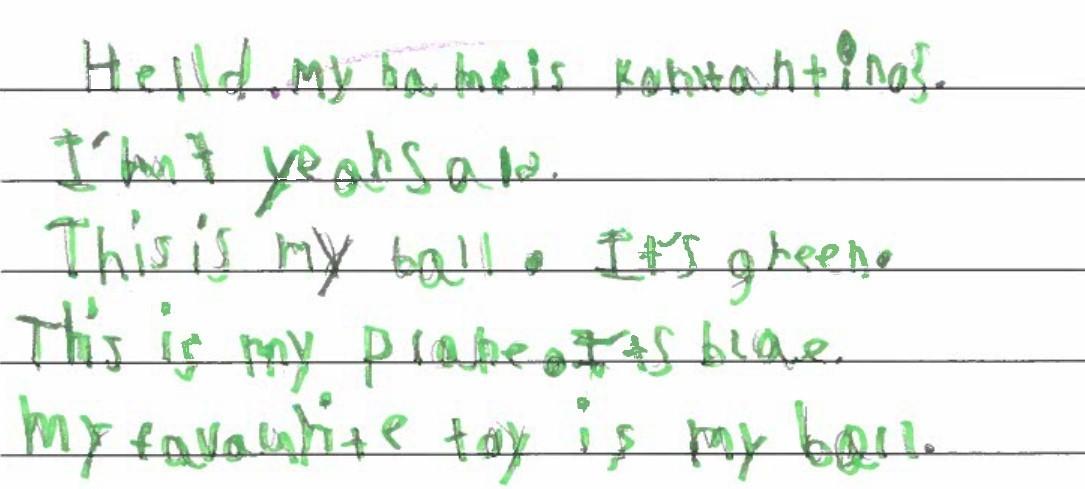 Hello. My name is Konstantinos.
I'm 7 years old.
This is my ball. It's green.
This is my plane. It's blue.
My favourite toy is my ball.